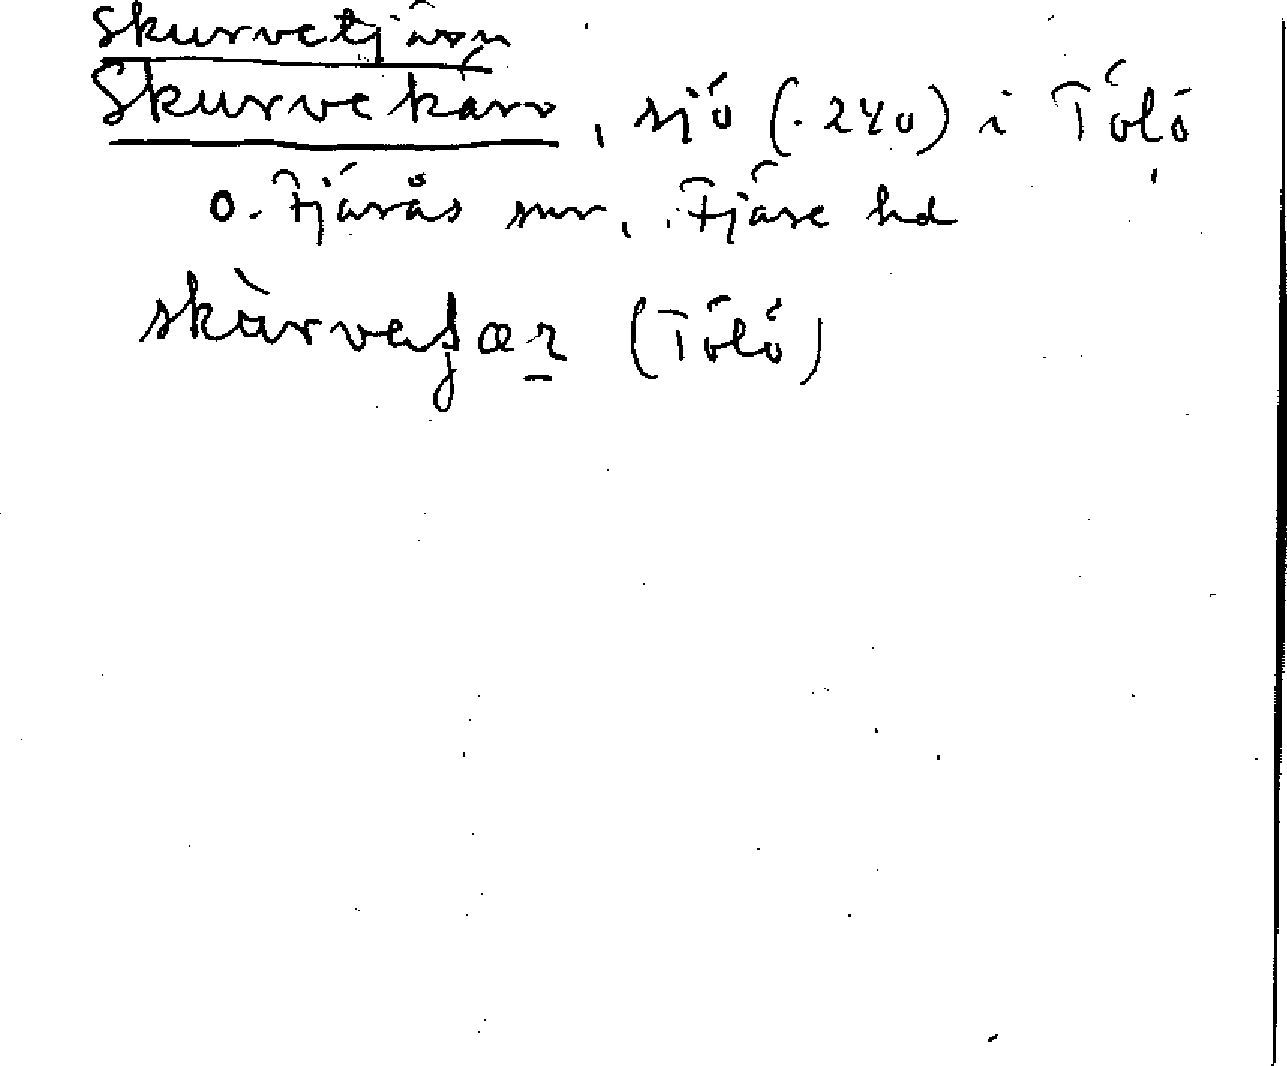 Skurvetjärn
Skurvekärr, sjö (.240) i Tölö
o. Fjärås snr, Fjäre hd
(Tölö)